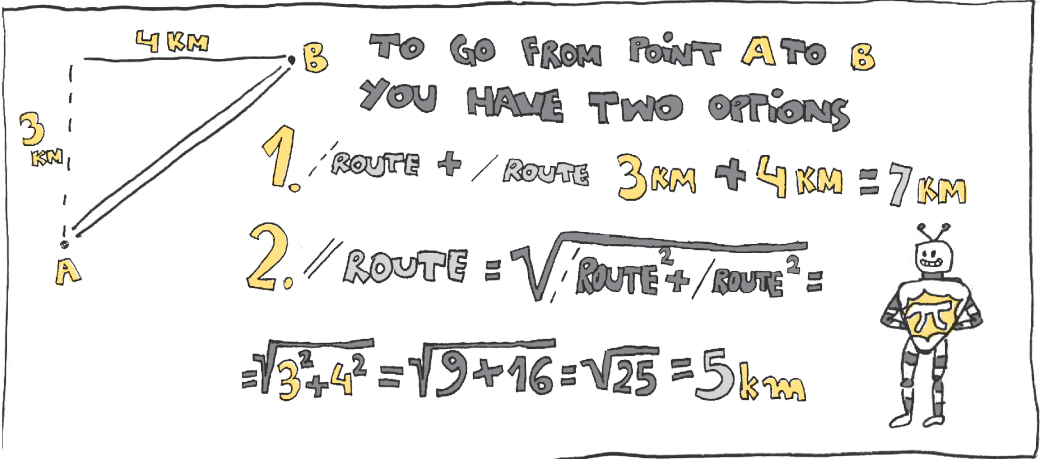 4 KM
B
3 KM
A
TO GO FROM POINT A TO B
YOU HAVE TWO OPTIONS
1. /ROUTE + /ROUTE 3 KM + 4 KM = 7 KM
2. //ROUTE = √/ROUTE² + /ROUTE² =
= √3² + 4² = √9 + 16 = √25 = 5 km
π